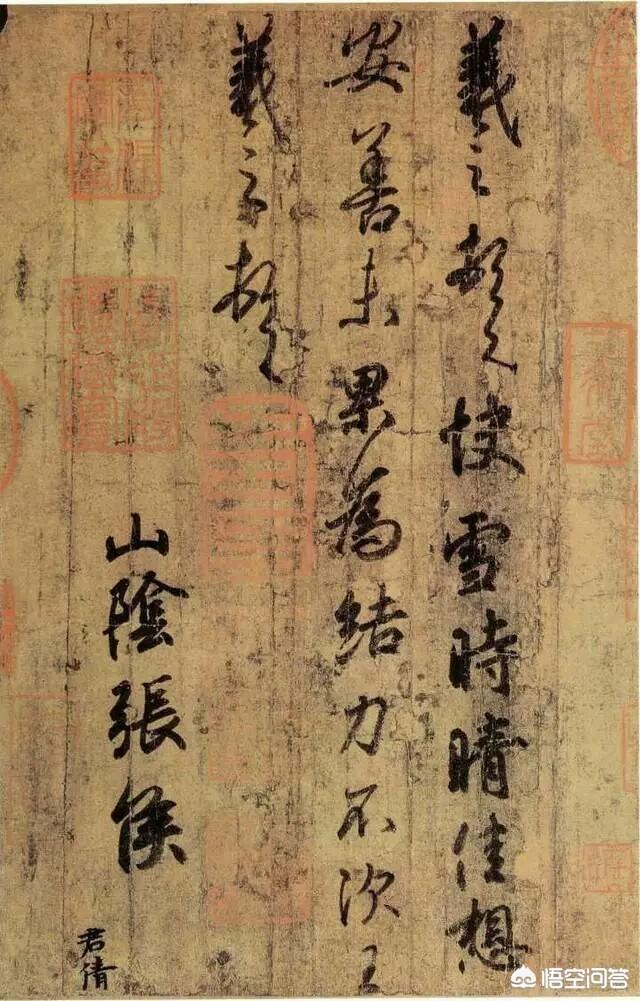 羲之頓首快雪時晴佳想
安善未果為結力不次王
羲之頓首
山陰張侯
君倩
悟空问答